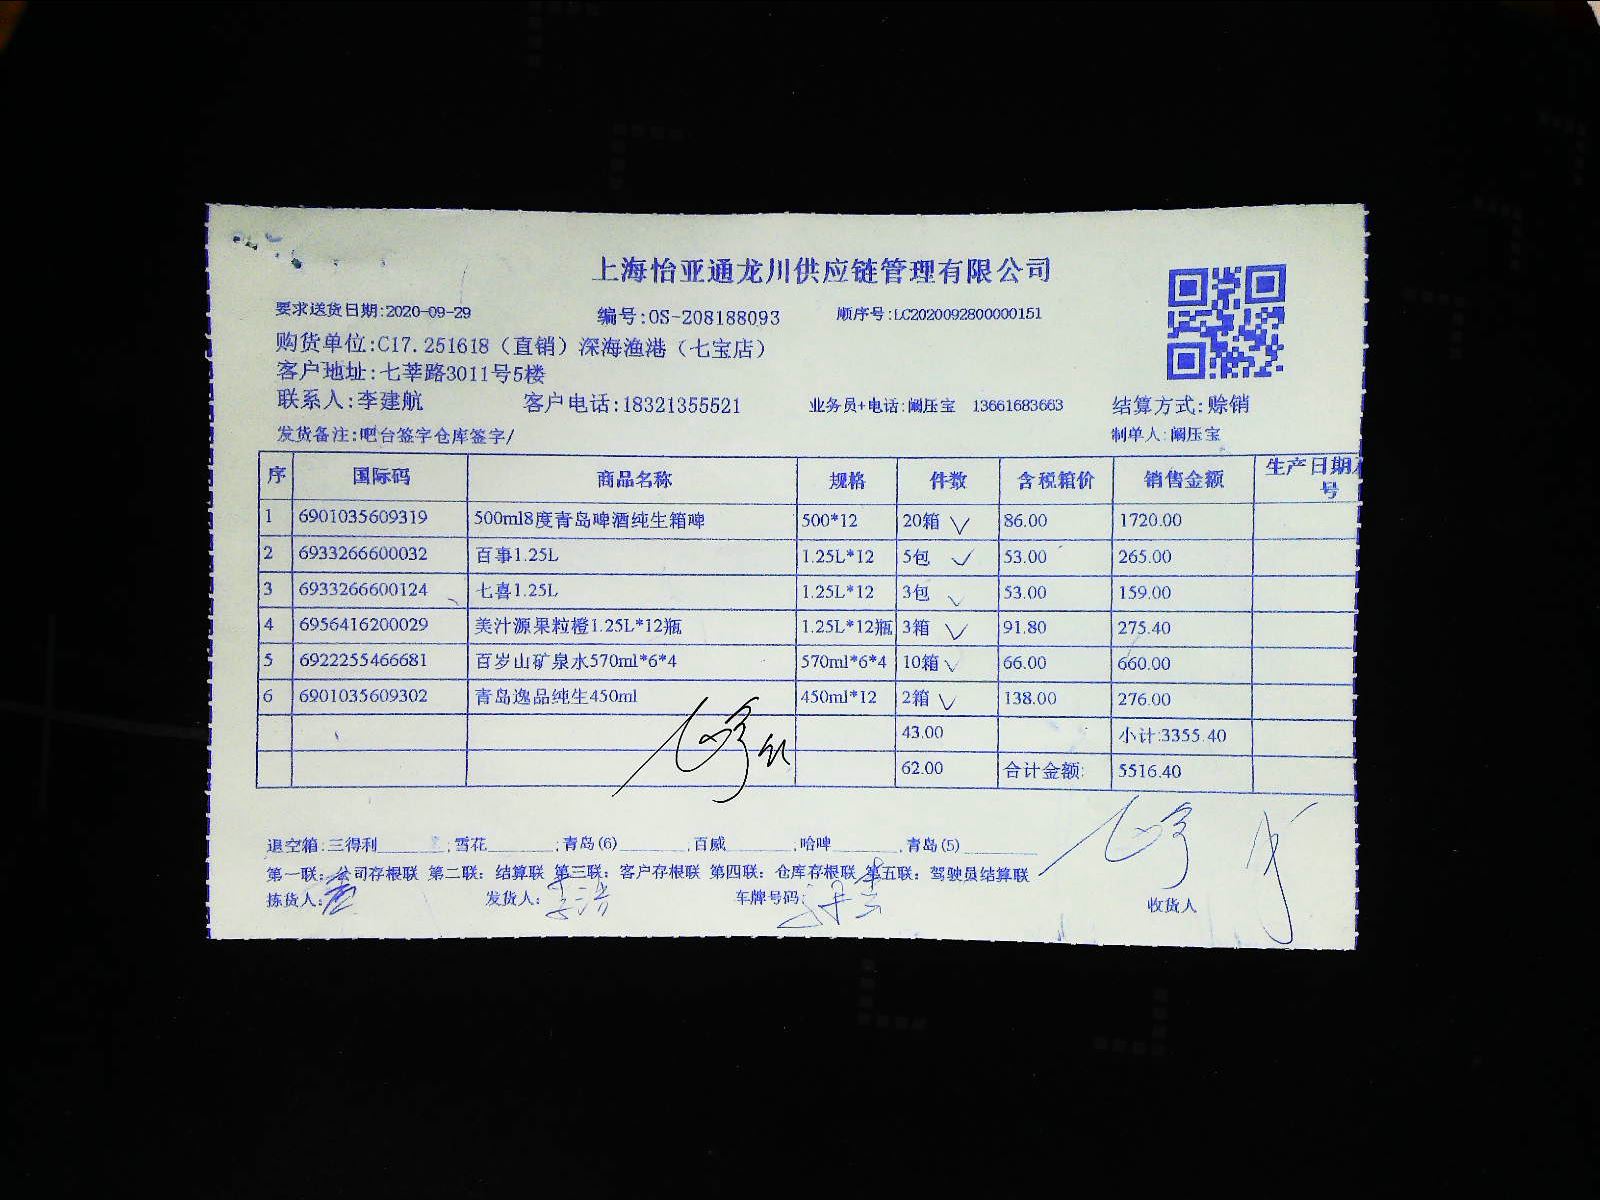 上海怡亚通龙川供应链管理有限公司
要求送货日期:2020-09-29 编号:OS-208188093 顺序号:LC2020092800000151
购货单位:CI7.251618（直销）深海渔港（七宝店）
客户地址:七莘路3011号5楼
联系人:李建航 客户电话:18321355521 业务员+电话:阚压宝 13661683663 结算方式:赊销
发货备注:吧台签字仓库签字/ 制单人:阚压宝
序 国际码 商品名称 规格 件数 含税箱价 销售金额 生产日期
号
1 6901035609319 500ml8度青岛啤酒纯生箱啤 500*12 20箱 86.00 1720.00
2 6933266600032 百事1.25L 1.25L*12 5包 53.00 265.00
3 6933266600124 七喜1.25L 1.25L*12 3包 53.00 159.00
4 6956416200029 美汁源果粒橙1.25L*12瓶 1.25L*12瓶 3箱 91.80 275.40
5 6922255466681 百岁山矿泉水570ml*6*4 570ml*6*4 10箱 66.00 660.00
6 6901035609302 青岛逸品纯生450ml 450ml*12 2箱 138.00 276.00
43.00 小计:3355.40
62.00 合计金额: 5516.40
退空箱:三得利______;雪花______;青岛(6)______,百威______,哈啤______,青岛(5)______
第一联：公司存根联 第二联：结算联 第三联：客户存根联 第四联：仓库存根联 第五联：驾驶员结算联
拣货人: 发货人: 车牌号码: 收货人